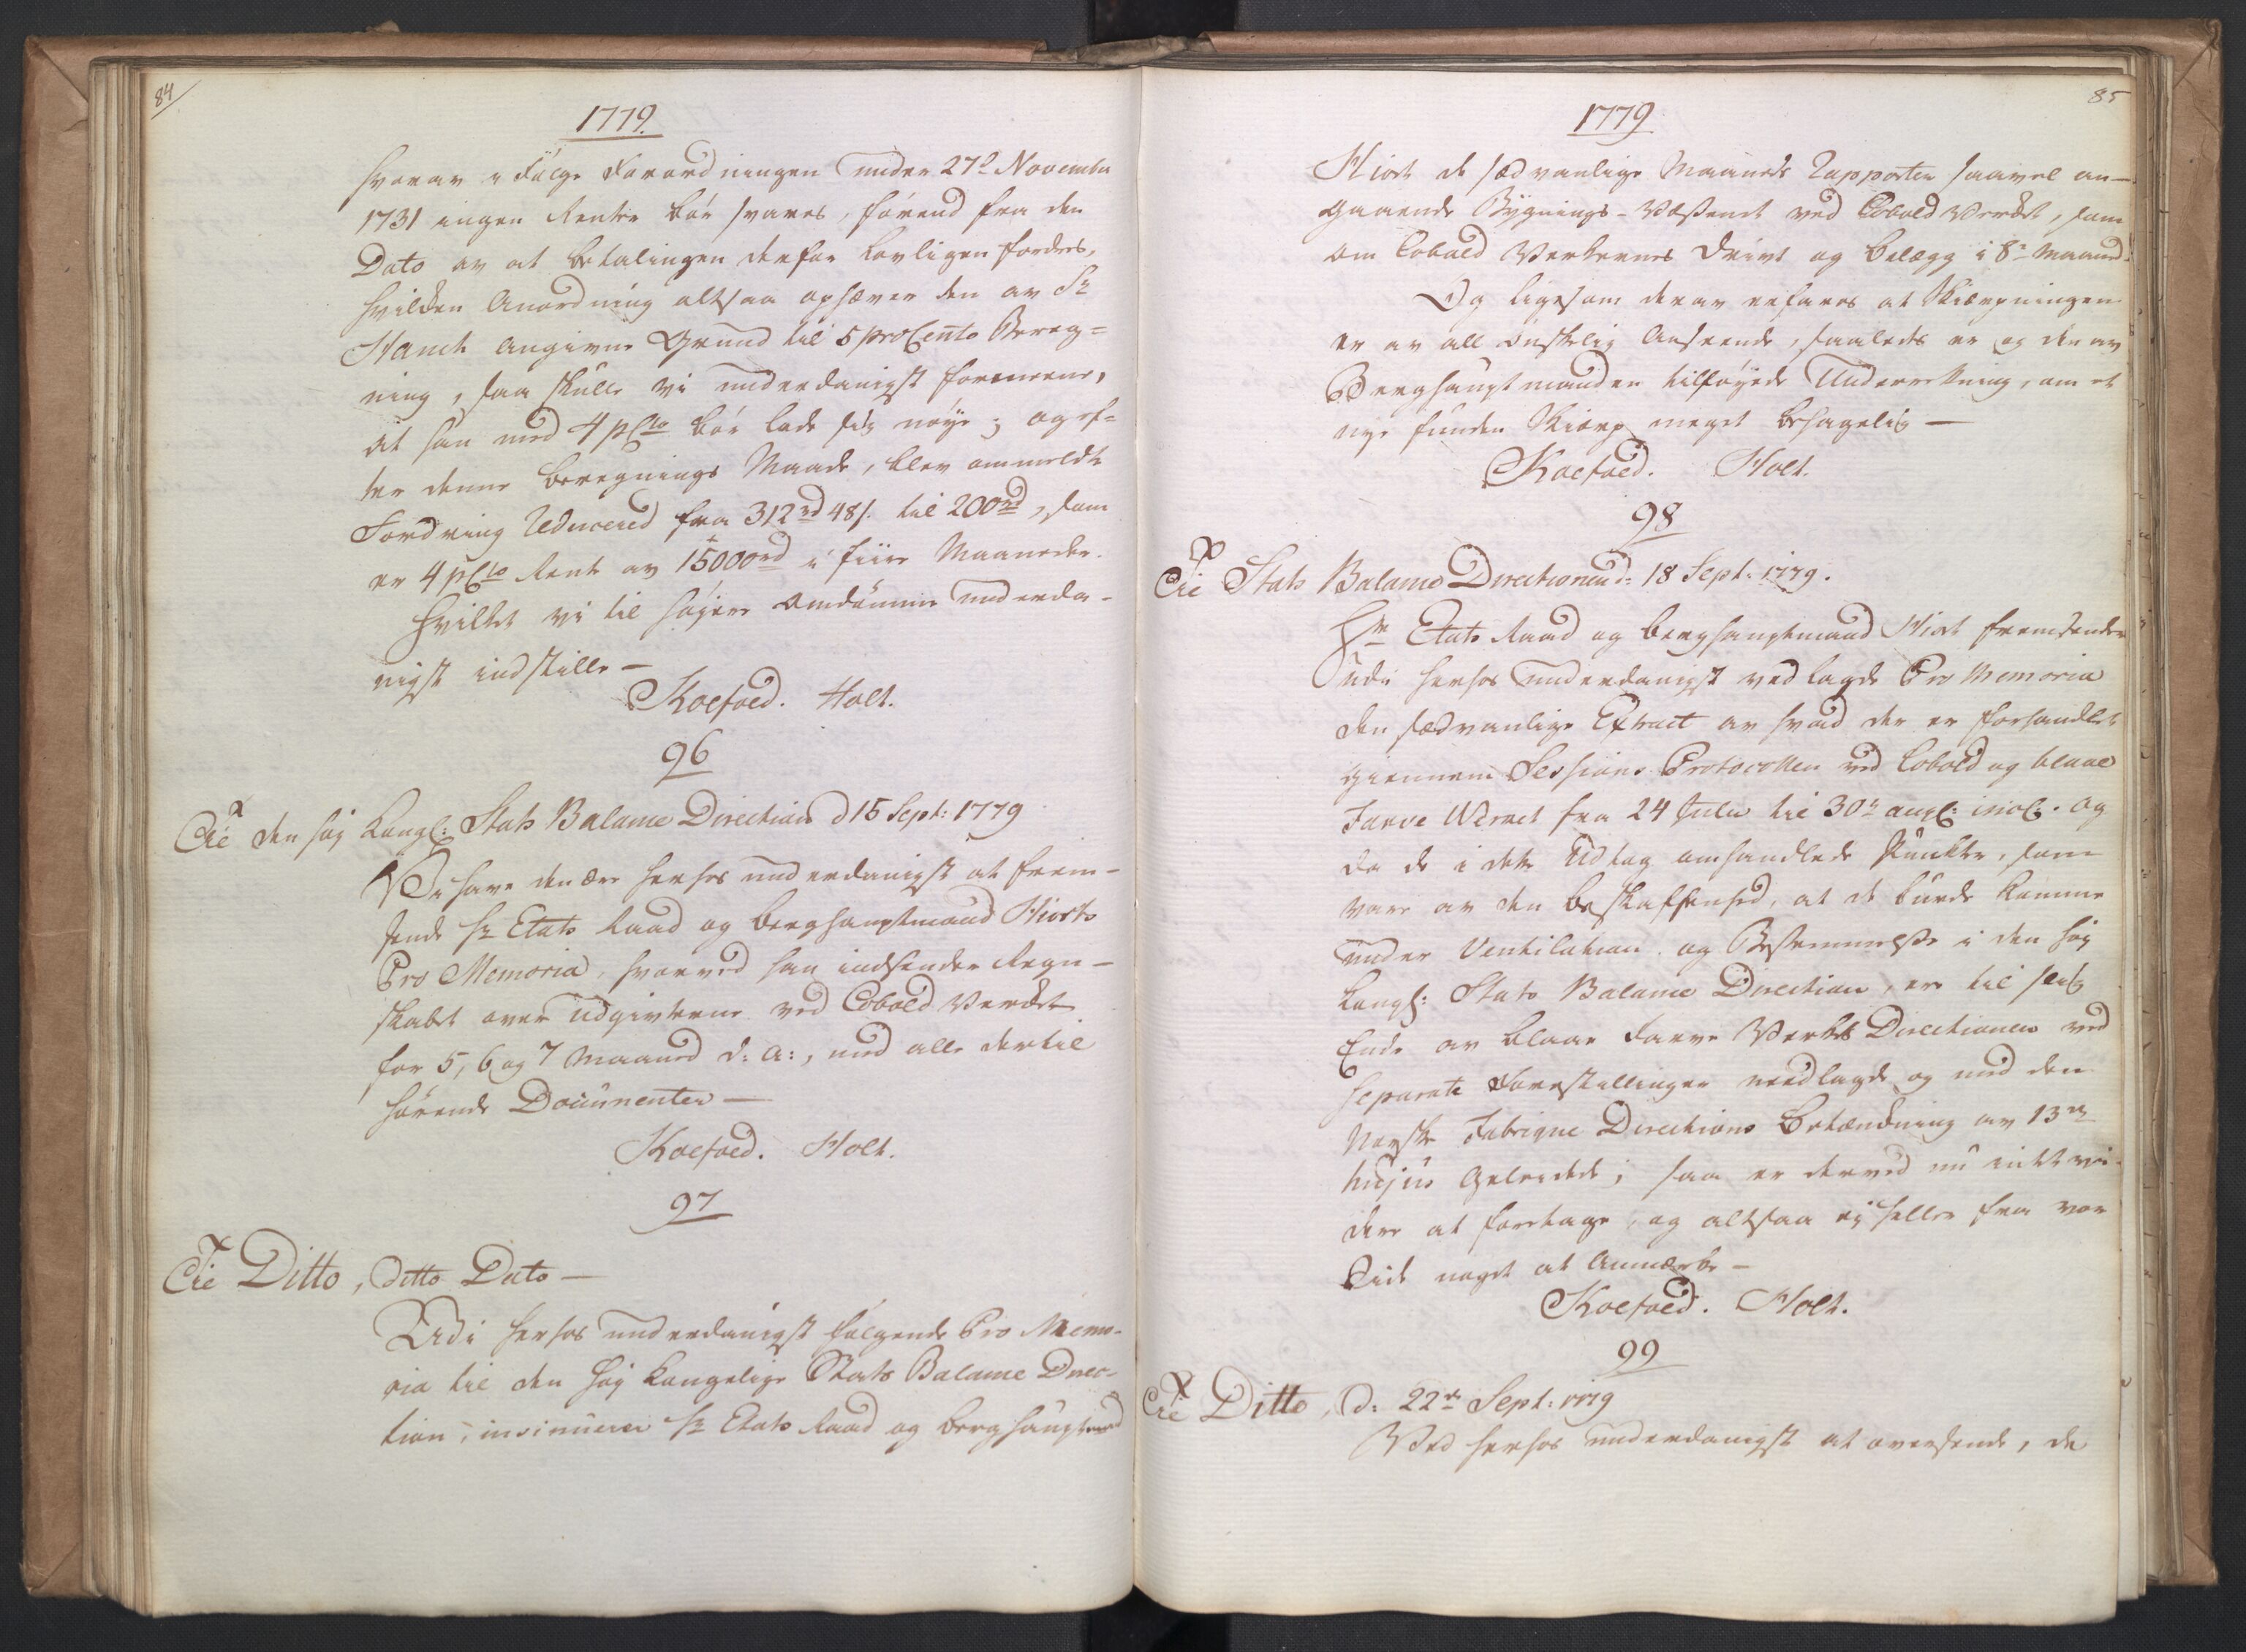 84
1779.
hvorav i Følge Forordningen under 27de November
1731 ingen Renter bør svares, førend fra den
Dato av at Betalingen derfor lovligen fordres,
hvilken Anordning altsaa ophæver den av Hr
Stanch angivne Grund til 5 pro Cento Bereg=
ning, saa skulle vi underdanigst formeene,
at han med 4 pCto bør lade sig nøye; og ef=
ter denne Beregnings Maade, blev ommeldte
Fordring reduceret fra 312 rd 48 s. til 200 rd, som
er 4 pCto Rente av 15000 rd i fiire Maaneder.
Hvilket vi til høiere Omdømme underda-
nigst indstille -
Koefoed. Holt.
96
Til den høy Kongl: Stats Balance Direction d 15 Sept: 1779
Vi have den Ære herhos underdanigst at frem-
sende Hr Etats Raad og Berghauptmand Hiorts
Pro Memoria, hvorved han indsender Regn-
skabet over Udgivterne ved Cobold Verket
for 5, 6 og 7 Maaned d: A:, med alle dertil
hørende Documenter -
Koefoed. Holt.
97
Til Ditto, Ditto Dato -
Udi herhos underdanigst følgende Pro Memo-
ria til den høy Kongelige Stats Balance Direc-
tion, insinuerer Hr Etats Raad og Berghauptmand
85
1779
Hiort de sædvanlige Maaneds Rapporter saavel an-
gaaende Bygnings-Væsenet ved Cobold Verket, som
om Cobold Verkernes Drivt og Belægg i 8de Maaned.
Og ligesom derav erfares at Skiærpningen
er av all ønskelig Anseende, saaledes er og den av
Berghauptmanden tilføyede Underretning, om et
nye funden Skiærp meget behagelig -
Koefoed. Holt.
98
Til Stats Balance Directionen d: 18 Sept: 1779.
Hr Etats Raad og Berghauptmand Hiort fremsender
udi herhos underdanigst vedlagde Pro Memoria
den sædvanlige Extract av hvad der er forhandlet
giennem Sessions Protocollen ved Cobold og blaae
Farve Værket fra 24 Julii til 30te aug: incl. og
da de i dette Udtog omhandlede Punkter, som
vare av den Beskaffenhed, at de burde komme
under Ventilation og Bestemmelse i den høy
Kongl: Stats Balance Direction, ere til slig
Ende av blaae Farve Verks Directionen ved
separate Forestillinger needlagde og med den
Norske Fabrique Directions Betænkning av 13de
hujus geleidede; saa er derved nu intet vi-
dere at foretage, og altsaa ey heller fra vor
Side noget at anmærke -
Koefoed. Holt.
99
Til Ditto, d: 22de Sept: 1779
Ved herhos underdanigst at oversende, de